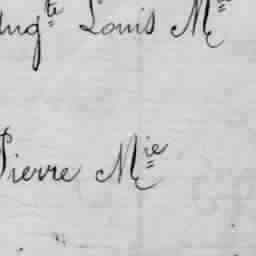 Augte Louis Mie
Pierre Mie